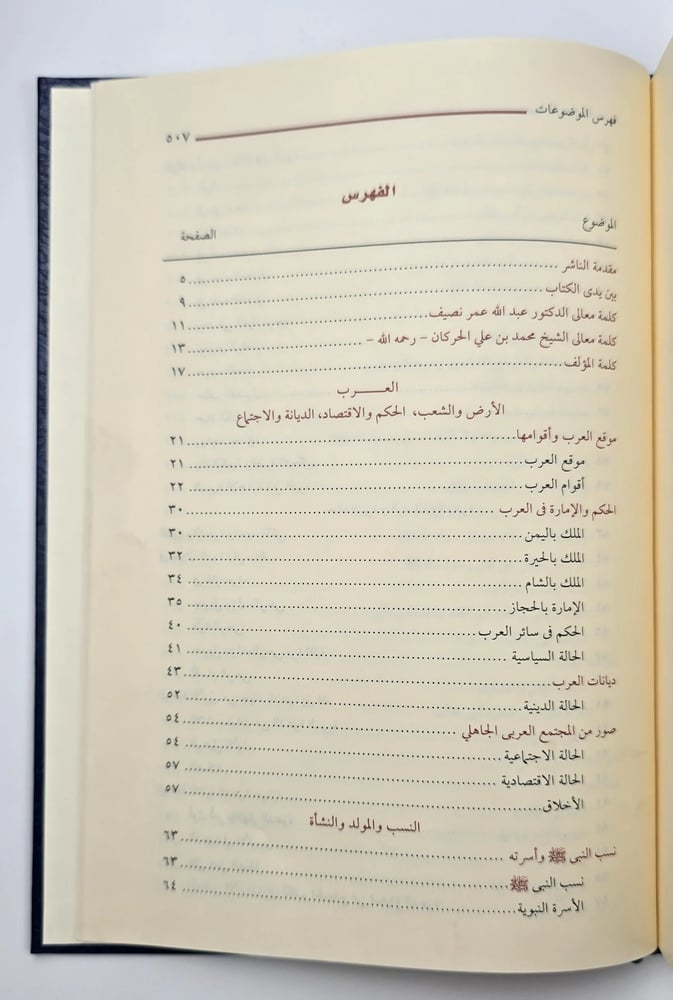 فهرس الموضوعات ٥٠٧
الفهرس
الموضوع الصفحة
مقدمة الناشر ٥
بين يدى الكتاب ٩
كلمة معالى الدكتور عبد الله عمر نصيف ١١
كلمة معالى الشيخ محمد بن علي الحركان – رحمه الله – ١٣
كلمة المؤلف ١٧
العـــــرب
الأرض والشعب، الحكم والاقتصاد، الديانة والاجتماع
موقع العرب وأقوامها ٢١
موقع العرب ٢١
أقوام العرب ٢٢
الحكم والإمارة فى العرب ٣٠
الملك باليمن ٣٠
الملك بالحيرة ٣٢
الملك بالشام ٣٤
الإمارة بالحجاز ٣٥
الحكم فى سائر العرب ٤٠
الحالة السياسية ٤١
ديانات العرب ٤٣
الحالة الدينية ٥٢
صور من المجتمع العربى الجاهلي ٥٤
الحالة الاجتماعية ٥٤
الحالة الاقتصادية ٥٧
الأخلاق ٥٧
النسب والمولد والنشأة
نسب النبى ﷺ وأسرته ٦٣
نسب النبى ﷺ ٦٣
الأسرة النبوية ٦٤